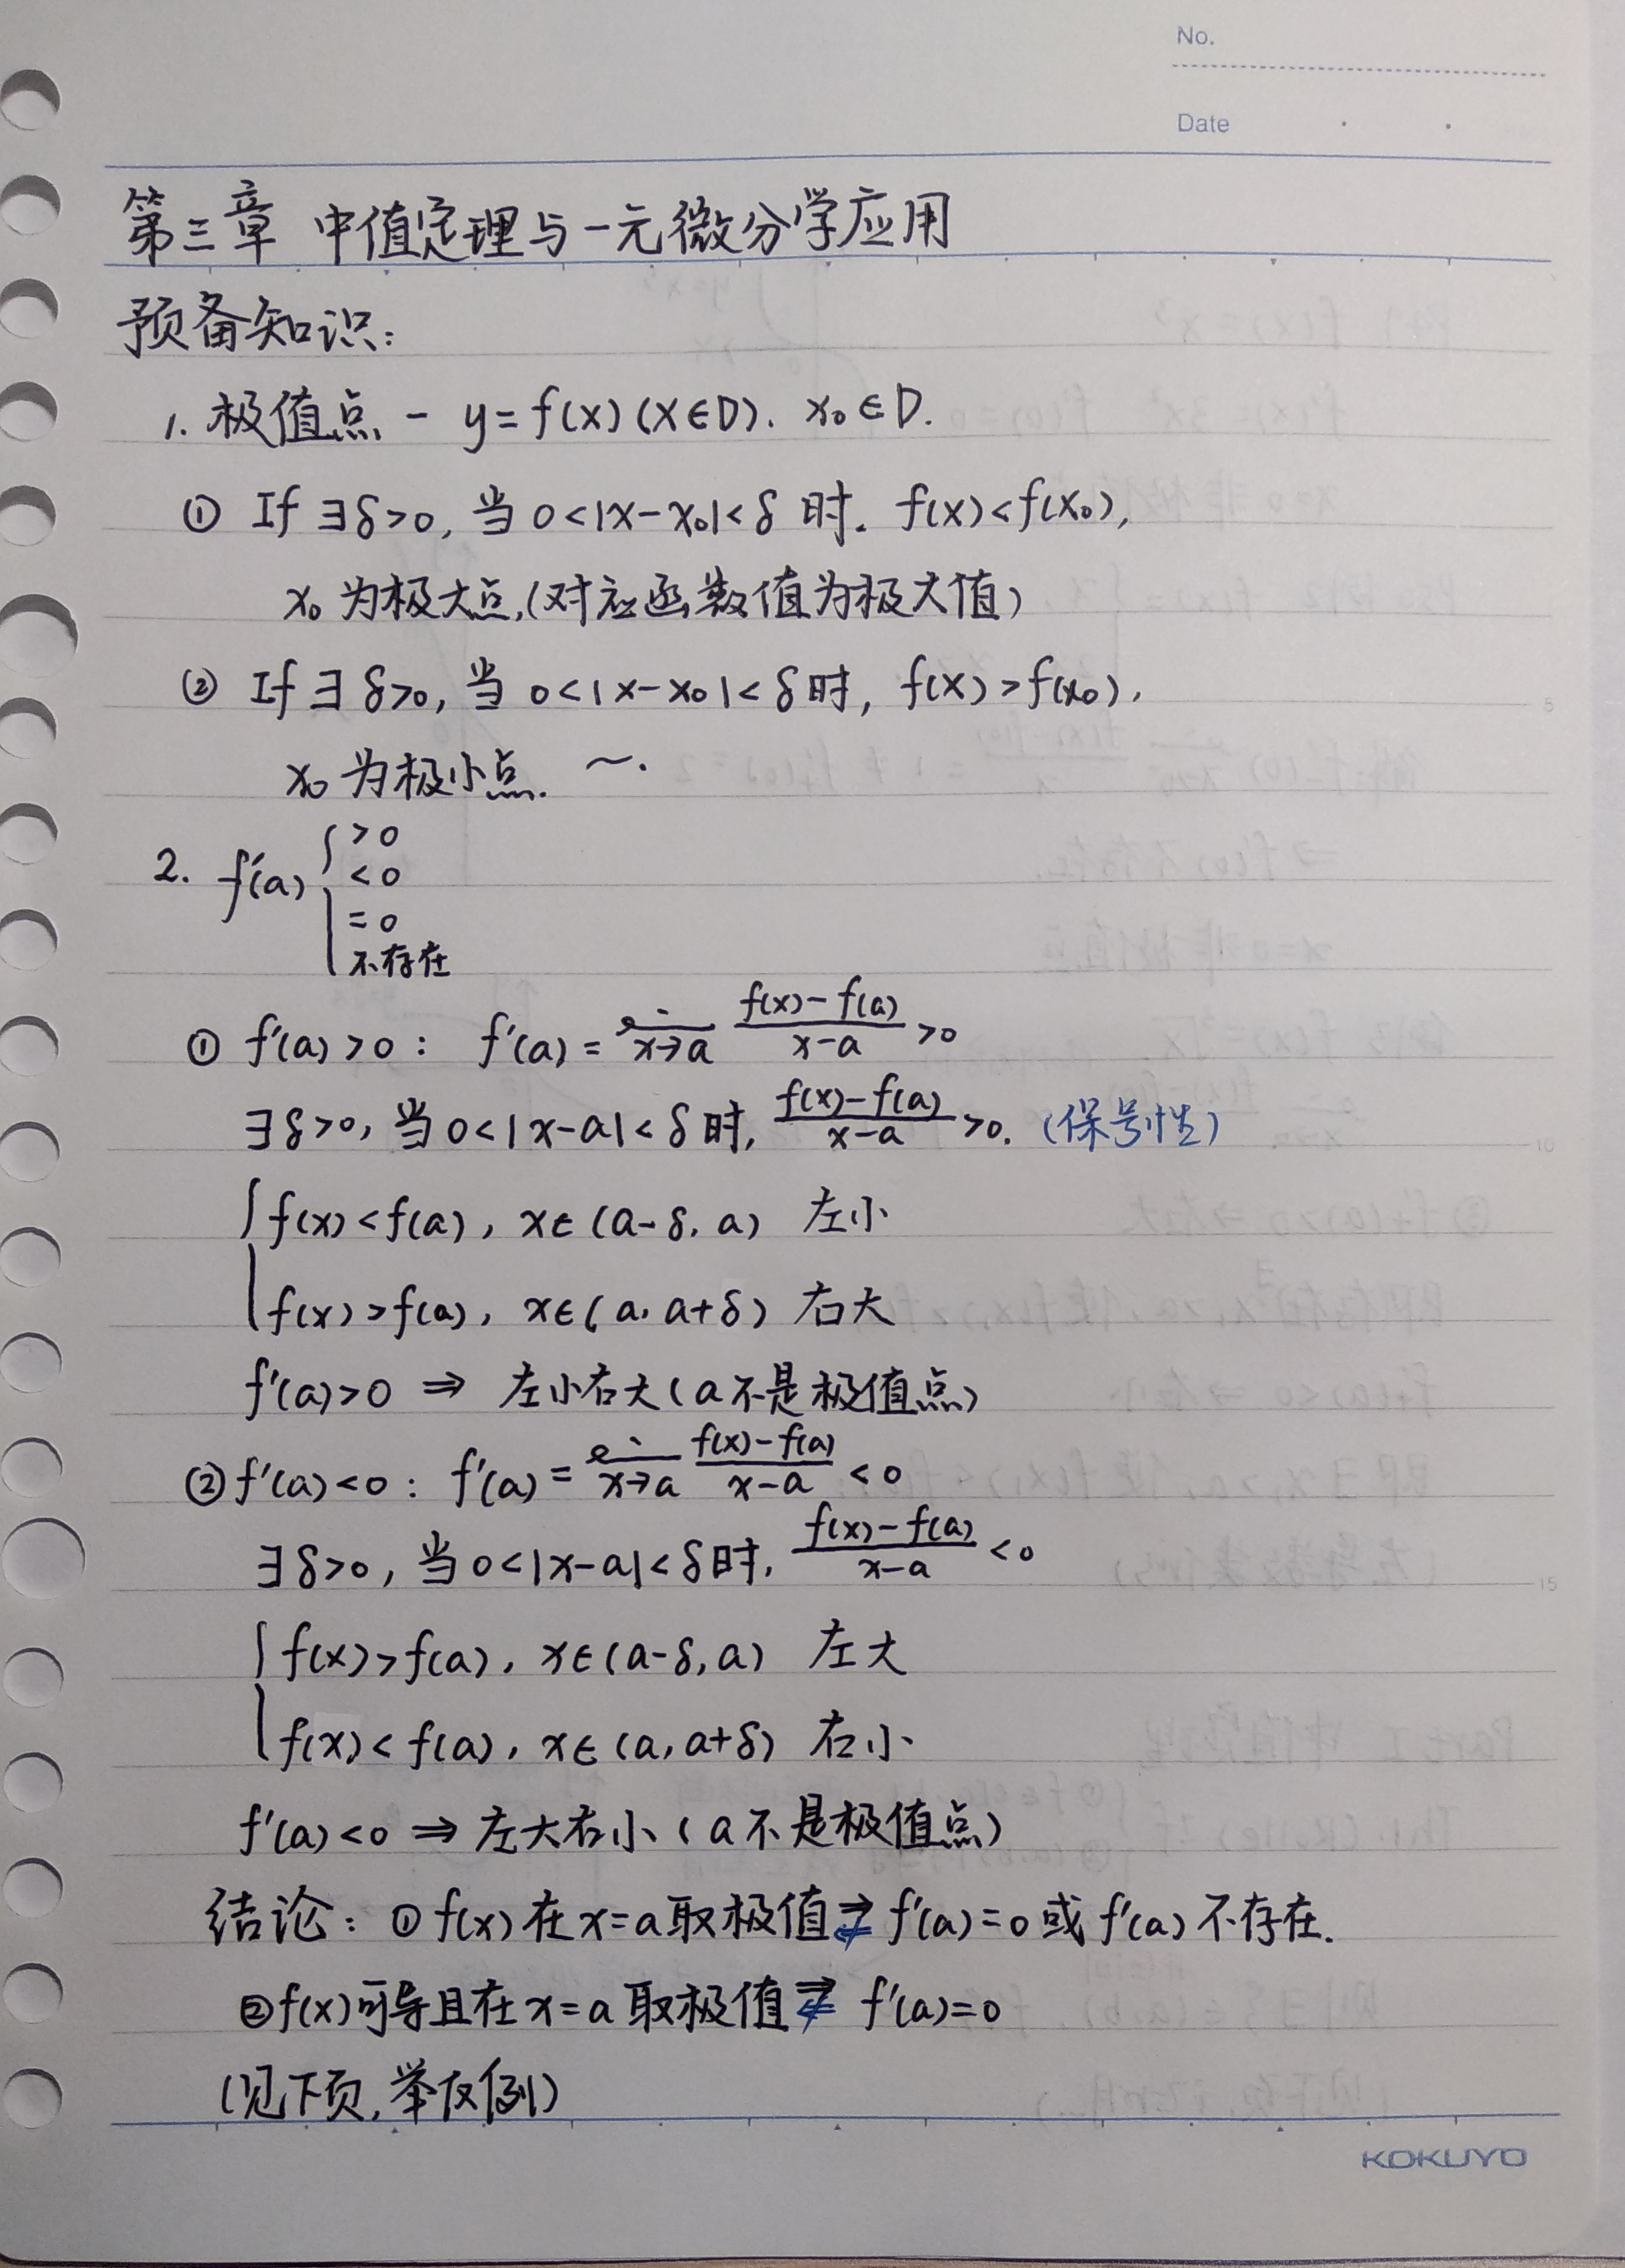 No.
Date
第三章 中值定理与一元微分学应用
预备知识:
1. 极值点 - y=f(x)(x∈D). x₀∈D.
① If ∃δ>0, 当 0<|x-x₀|<δ 时. f(x)<f(x₀),
x₀ 为极大点,(对应函数值为极大值)
② If ∃ δ>0, 当 0<|x-x₀|<δ时, f(x)>f(x₀),
x₀ 为极小点. ~.
2. f'(a) { >0
<0
=0
不存在
① f'(a)>0: f'(a)= lim x→a (f(x)-f(a))/(x-a) >0
∃δ>0, 当 0<|x-a|<δ 时, (f(x)-f(a))/(x-a) >0. (保号性)
{ f(x)<f(a), x∈(a-δ, a) 左小
f(x)>f(a), x∈(a, a+δ) 右大
f'(a)>0 ⇒ 左小右大(a不是极值点)
② f'(a)<0: f'(a)= lim x→a (f(x)-f(a))/(x-a) <0
∃δ>0, 当 0<|x-a|<δ时, (f(x)-f(a))/(x-a) <0
{ f(x)>f(a), x∈(a-δ,a) 左大
f(x)<f(a), x∈(a,a+δ) 右小
f'(a)<0 ⇒ 左大右小(a不是极值点)
结论: ① f(x) 在 x=a 取极值 ⇒ ⇍ f'(a)=0 或 f'(a) 不存在.
② f(x)可导且在 x=a 取极值 ⇒ ⇍ f'(a)=0
(见下页,举反例)
5
10
15
KOKUYO